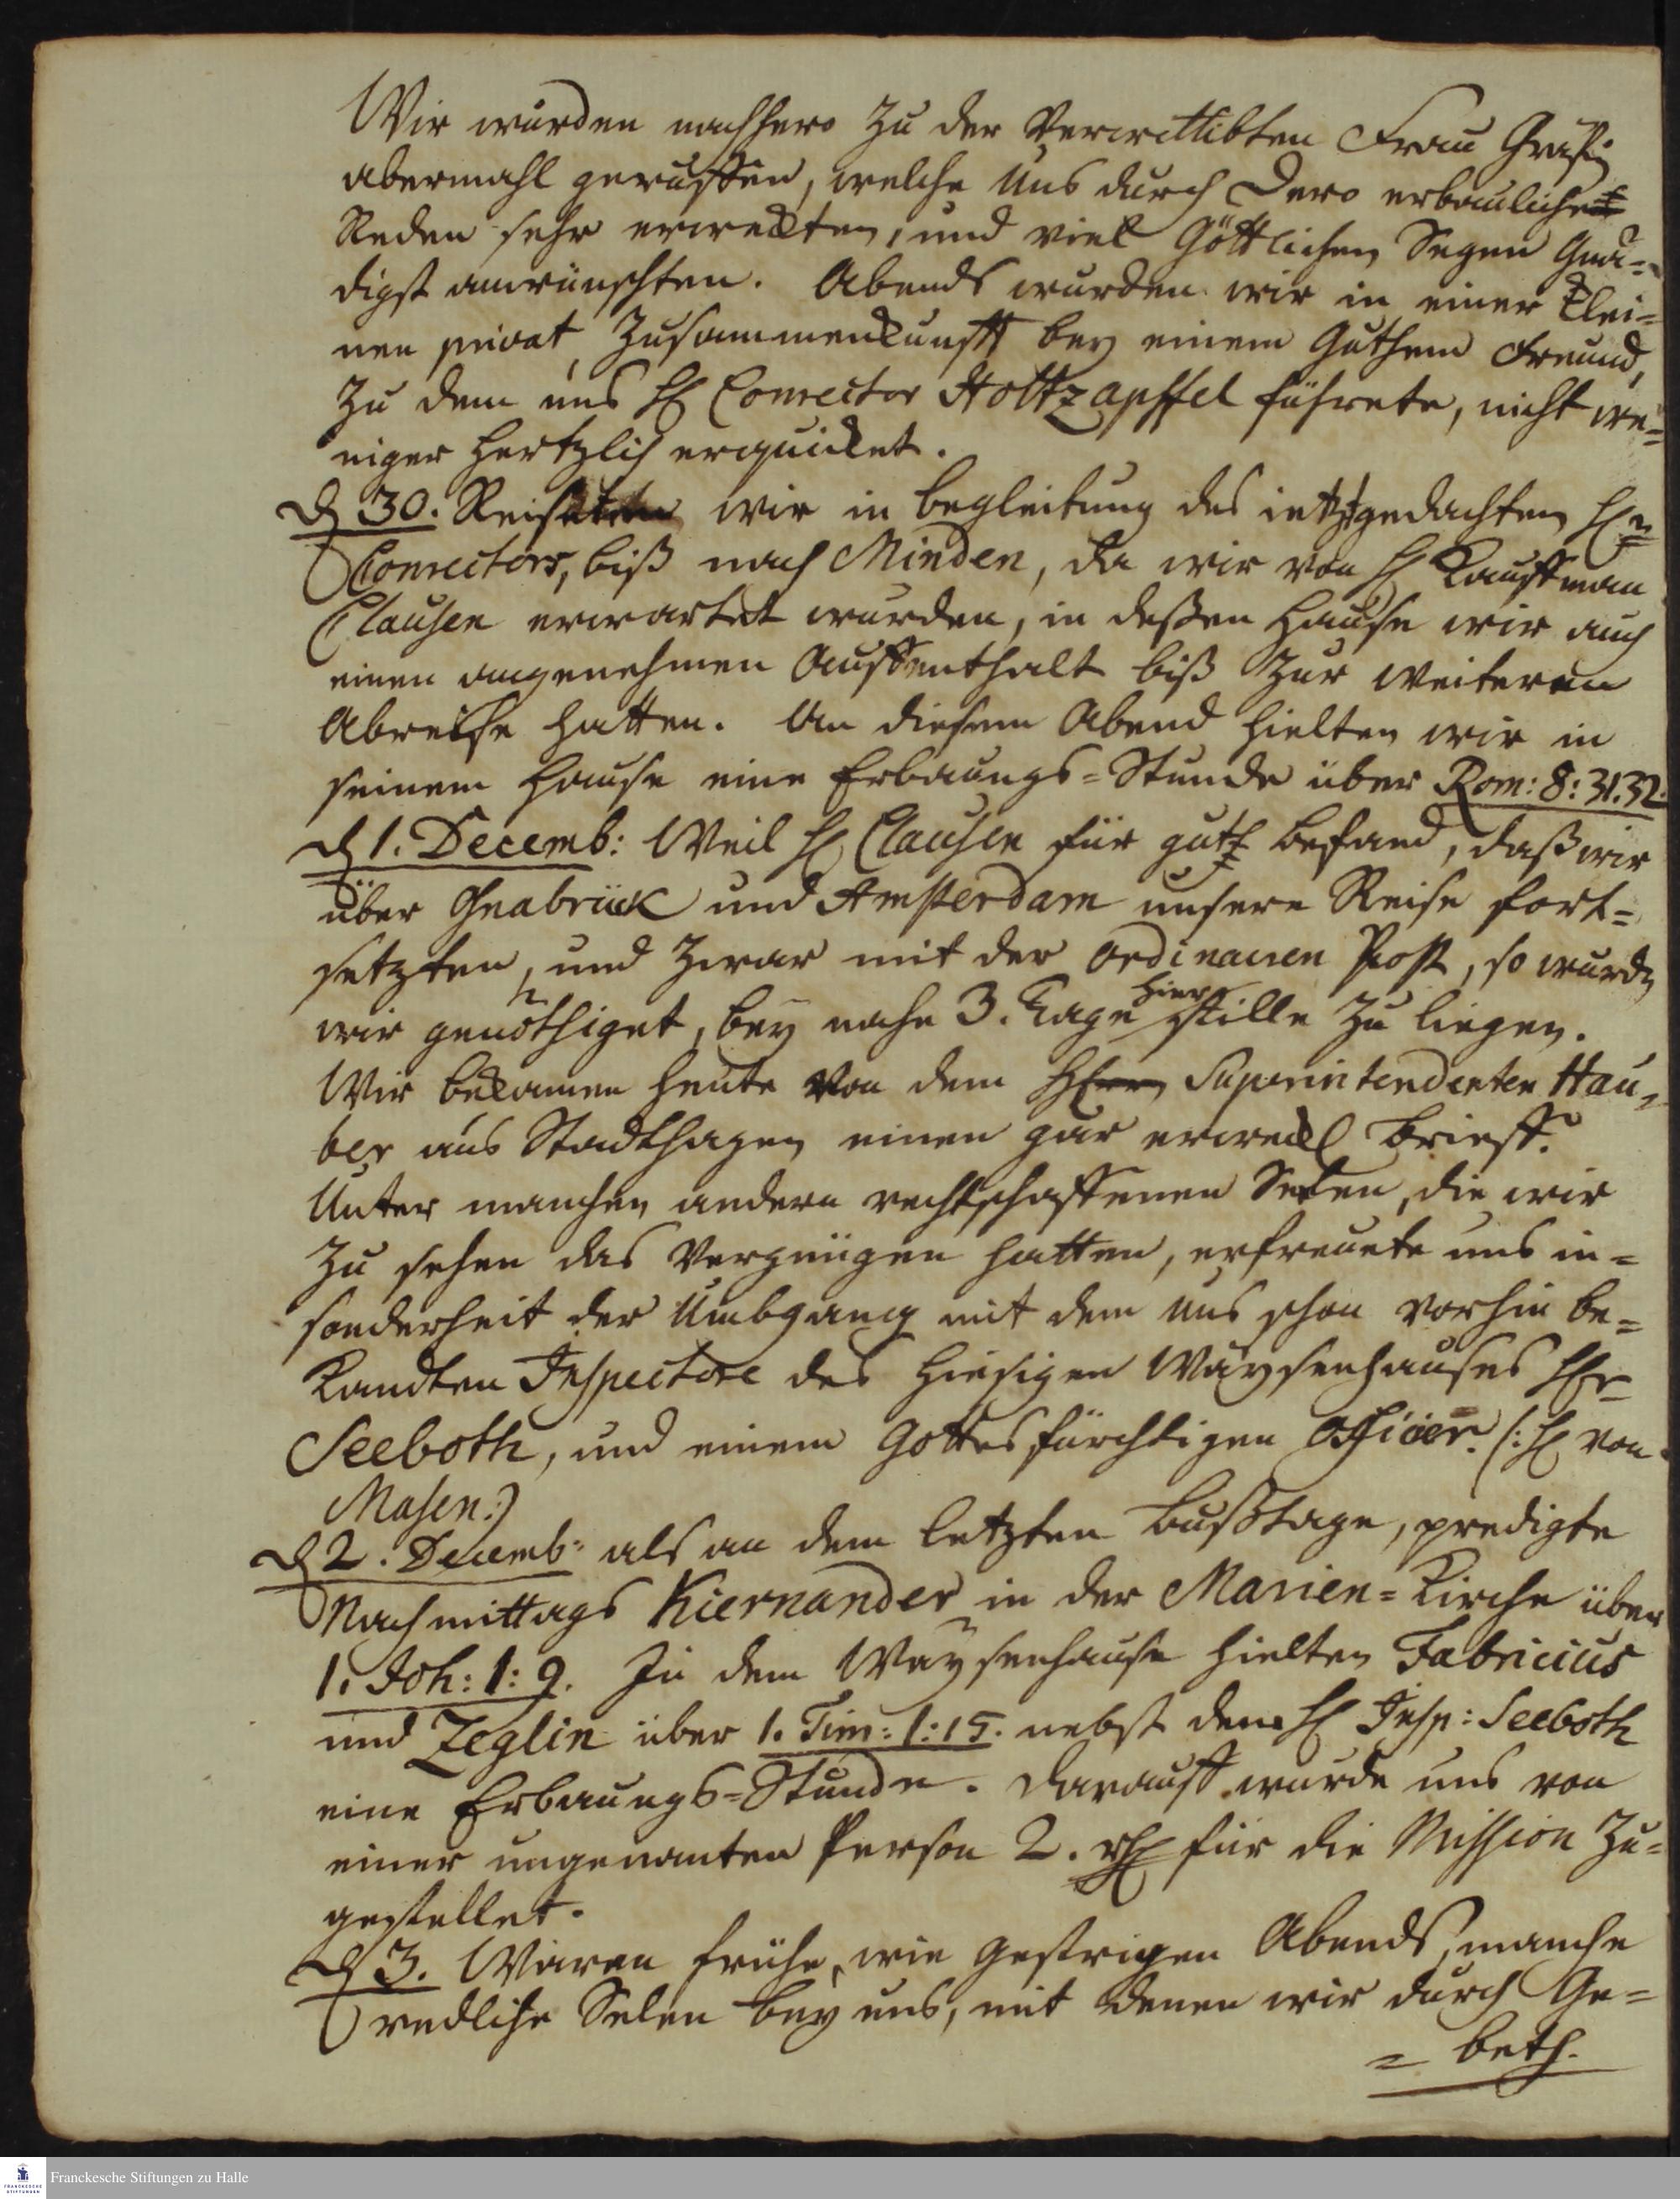 Wir wurden nachhero zu der Verwittibten Frau Gräfin
abermahl geruffen, welche uns durch Dero erbauliche
Reden sehr erweckten, und viel Göttlichen Segen Gnä=
digst anwünschten. Abends wurden wir in einer klei=
nen privat Zusammenkunfft bey einem Guthem Freund,
zu dem uns H Conrector Holtzapffel führete, nicht we=
niger hertzlich erquicket.
d 30. Reiseten wir in begleitung des ietztgedachten Hn
Conrectors, biß nach Minden, da wir von H Kauffman
Clausen erwartet wurden, in deßen Hause wir auch
einen angenehmen Auffenthalt biß zur weiteren
Abreise hatten. An diesem Abend hielten wir in
seinem Hause eine Erbauungs=Stunde über Rom: 8: 31.32.
d 1. Decemb: Weil H Clausen für guth befand, daß wir
über Osnabrück und Amsterdam unsere Reise fort=
setzten, und zwar mit der ordinairen Post, so wurdn
wir genöthiget, bey nahe 3. Tage hier stille zu liegen.
Wir bekamen heute von dem Herrn Superintendenten Hau=
ber aus Stadthagen einen gar erweckl Brieff.
Unter manchen andern rechtschaffenen Selen, die wir
zu sehen das Vergnügen hatten, erfreuete uns in=
sonderheit der Umbgang mit dem uns schon vorhin be=
kandten Inspectore des hiesigen Waysenhauses Hr
Seeboth, und einem Gottesfürchtigen Officier. (: H von
Masen:)
d 2. Decemb: als an dem letzten Bußtage, predigte
Nachmittags Kiernander in der Marien=Kirche über
1. Joh: 1: 9. In dem Waysenhause hielten Fabricius
und Zeglin über 1. Tim: 1: 15. nebst dem H Insp: Seeboth
eine Erbauungs=Stunde. Darauff wurde uns von
einer ungenanten Person 2. rh für die Mission zu=
gestellet.
d 3. Waren frühe, wie gestrigen Abends, manche
redliche Selen bey uns, mit denen wir durch Ge=
= beth.
Franckesche Stiftungen zu Halle
FRANCKESCHE
STIFTUNGEN